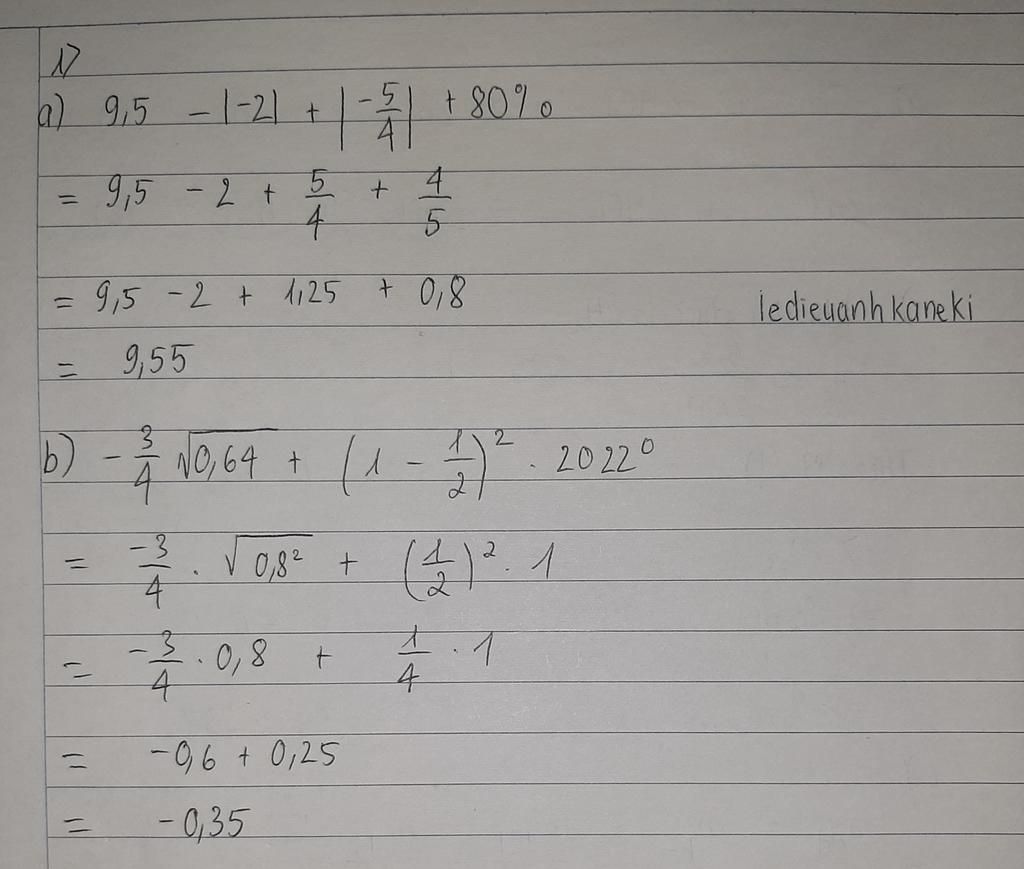 1)
a) 9,5 - |-2| + |-5/4| + 80%
= 9,5 - 2 + 5/4 + 4/5
= 9,5 - 2 + 1,25 + 0,8
ledieuanhkaneki
= 9,55
b) -3/4 √0,64 + (1 - 1/2)² . 2022⁰
= -3/4 . √0,8² + (1/2)² . 1
= -3/4 . 0,8 + 1/4 . 1
= -0,6 + 0,25
= -0,35